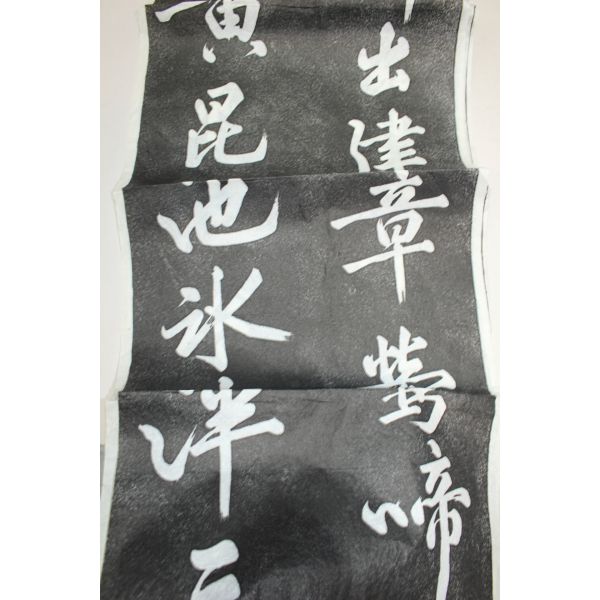 出建章鶯啼
黄昆池氷泮